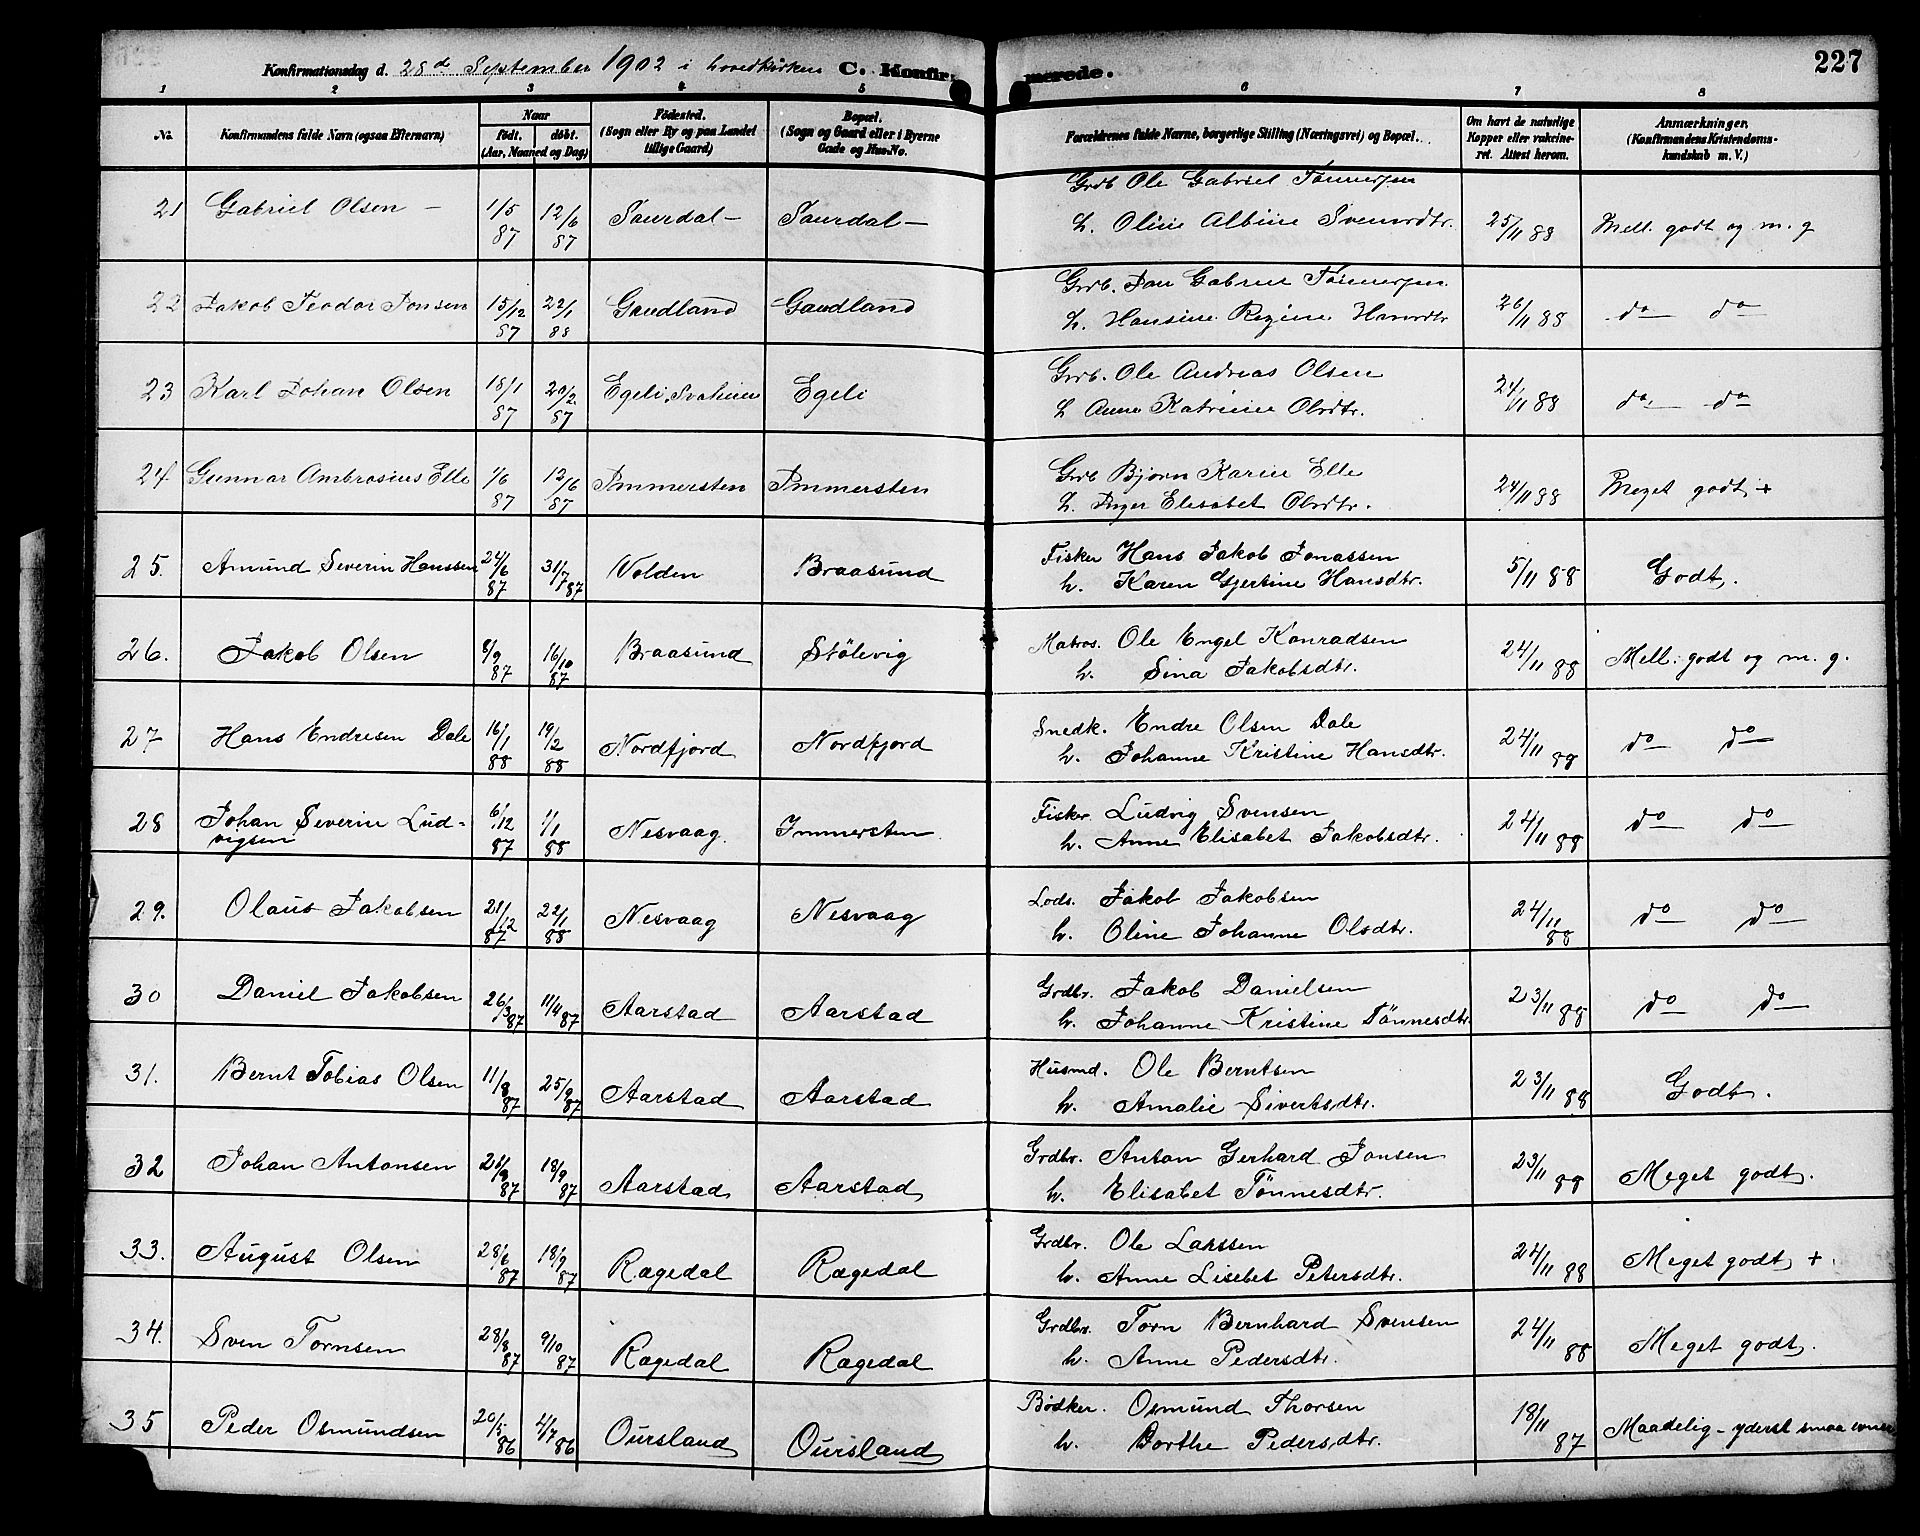 227
Konfirmationsdag d. 28d September 1902 i hovedkirken C. Konfirmerede.
1 2 3 4 5 6 7 8
No. Konfirmandens fulde Navn (ogsaa Efternavn) Naar født. døbt. (Aar, Maaned og Dag) Fødested. (Sogn eller By og paa Landet tillige Gaard) Bopæl. (Sogn og Gaard eller i Byerne Gade og Hus-No. Forældrenes fulde Navne, borgerlige Stilling (Næringsvei) og Bopæl. Om havt de naturlige Kopper eller vakcineret. Attest herom. Anmærkninger, (Konfirmandens Kristendomskundskab m. V.)
21 Gabriel Olsen – 1/5 87 12/6 87 Saurdal – Saurdal – Grdb Ole Gabriel Tønnesen
h. Oline Albine Svensdtr. 25/11 88 Mell. godt og m. g
22 Jakob Teodor Jonsen 15/12 87 22/1 88 Gaudland Gaudland Grdb. Jon Gabriel Tønnesen
h. Hansine Regine 26/11 88 do do
23 Karl Johan Olsen 18/1 87 20/2 87 Egeli, Svaheien Egeli Grdb. Ole Andreas Olsen
h Anne Katrine Olsdtr. 24/11 88 do do
24 Gunnar Ambrosius Elle 1/6 87 12/6 87 Immersten Immersten Grdb Bjørn Karin Elle
h. Inger Elisabet Olsdtr. 24/11 88 Meget godt +
25. Amund Severin Hanssen 24/6 87 31/7 87 Volden Braasund Fisker Hans Jakob Jonassen
h. Karen Gjertine Hansdtr. 5/11 88 Godt.
26. Jakob Olsen 8/9 87 16/10 87 Braasund Stölevig Matros. Ole Engel Konradsen
h. Sina Jakobsdtr. 24/11 88 Mell: godt og m. g.
27 Hans Endresen Dale 16/1 88 19/2 88 Nordfjord Nordfjord Snedk. Endre Olsen Dale
h. Johanne Kristine Hansdtr. 24/11 88 do do
28 Johan Severin Lud-
vigsen 6/12 87 1/1 88 Nesvaag. Immersten Fisker. Ludvig Svensen
h. Anne Elisabet Jakobsdtr. 24/11 88 do do
29. Olaus Jakobsen 21/12 87 22/1 88 Nesvaag Nesvaag Lods. Jakob Jakobsen
h. Oline Johanne Olsdtr. 24/11 88 do do
30 Daniel Jakobsen 26/3 87 11/4 87 Aarstad Aarstad Grdbr. Jakob Danielsen
h. Johanne Kristine Tönnesdtr 23/11 88 do do
31. Bernt Tobias Olsen 11/8 87 25/9 87 Aarstad Aarstad Husmd. Ole Berntsen
h. Amalie Sivertsdtr. 23/11 88 Godt.
32 Johan Antonsen 26/8 87 18/9 87 Aarstad Aarstad Grdbr. Anton Gerhard Jonsen
h. Elisabet Tönnesdtr. 23/11 88 Meget godt.
33. August Olsen 28/6 87 18/9 87 Rægedal Rægedal Grdbr. Ole Larssen
h. Anne Lisebet Petersdtr. 24/11 88 Meget godt +.
34. Sven Tornsen 28/8 87 9/10 87 Rægedal Rægedal Grdbr. Torn Bernhard Svensen
h. Anne Pedersdtr. 24/11 88 Meget godt.
35 Peder Osmundsen 20/5 86 4/7 86 Oursland Oursland Bödker. Osmund Thorsen
h. Dorthe Pedersdtr. 18/11 87 Maadelig – yderst smaa evner